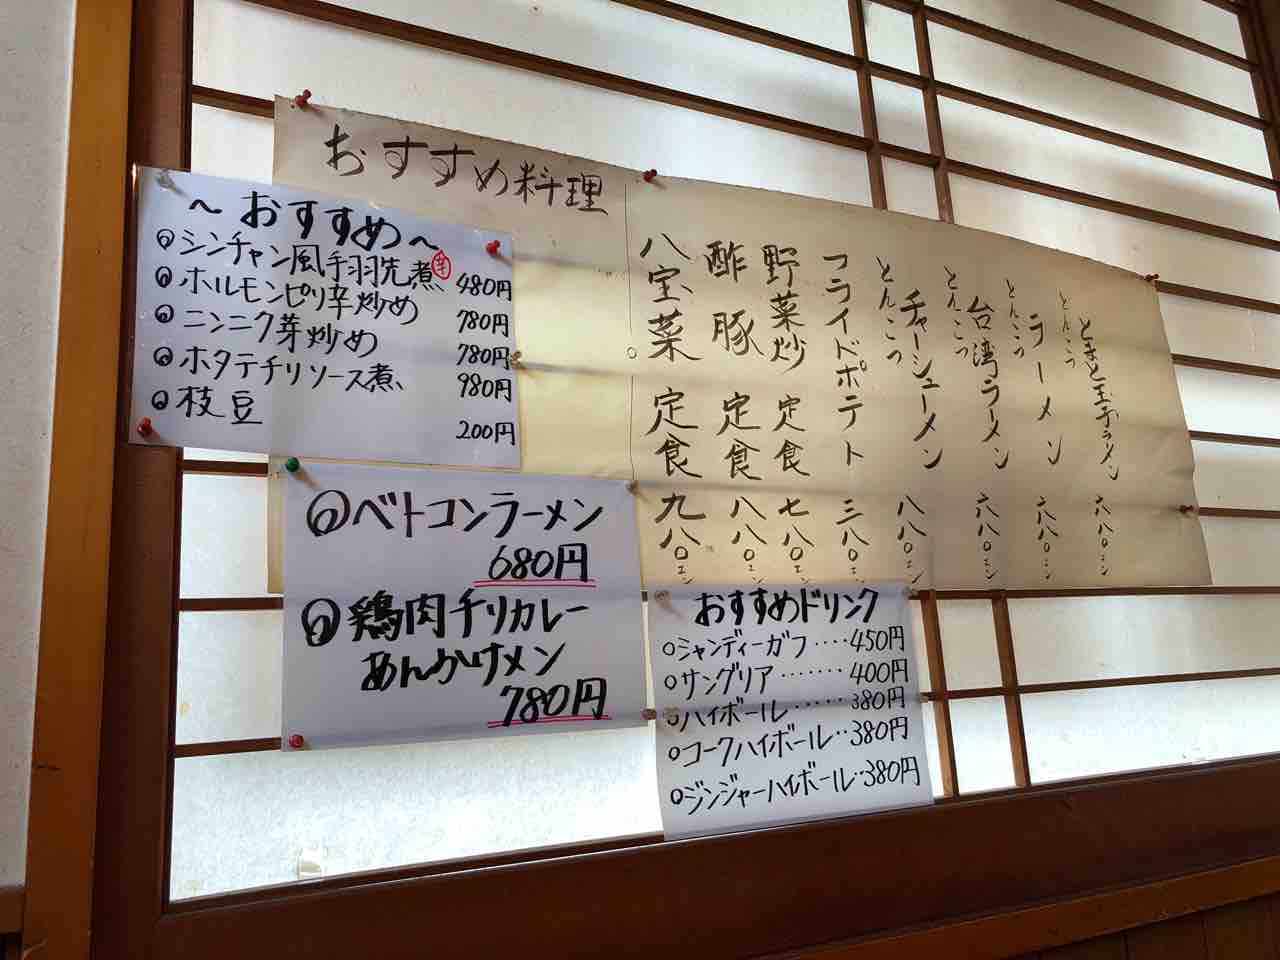 おすすめ料理
とんこつ とまと玉子ラーメン 六八〇エン
とんこつ ラーメン 六八〇エン
とんこつ 台湾ラーメン 六八〇エン
とんこつ チャーシューメン 八八〇エン
フライドポテト 三八〇エン
野菜炒定食 七八〇エン
酢豚定食 八八〇エン
八宝菜定食 九八〇エン
～おすすめ～
シンチャン風手羽先煮 辛 480円
ホルモンピリ辛炒め 780円
ニンニク芽炒め 780円
ホタテチリソース煮 980円
枝豆 200円
ベトコンラーメン
680円
鶏肉チリカレー
あんかけメン
780円
おすすめドリンク
○シャンディーガフ‥‥450円
○サングリア‥‥‥400円
○ハイボール‥‥‥380円
○コークハイボール‥380円
○ジンジャーハイボール‥380円